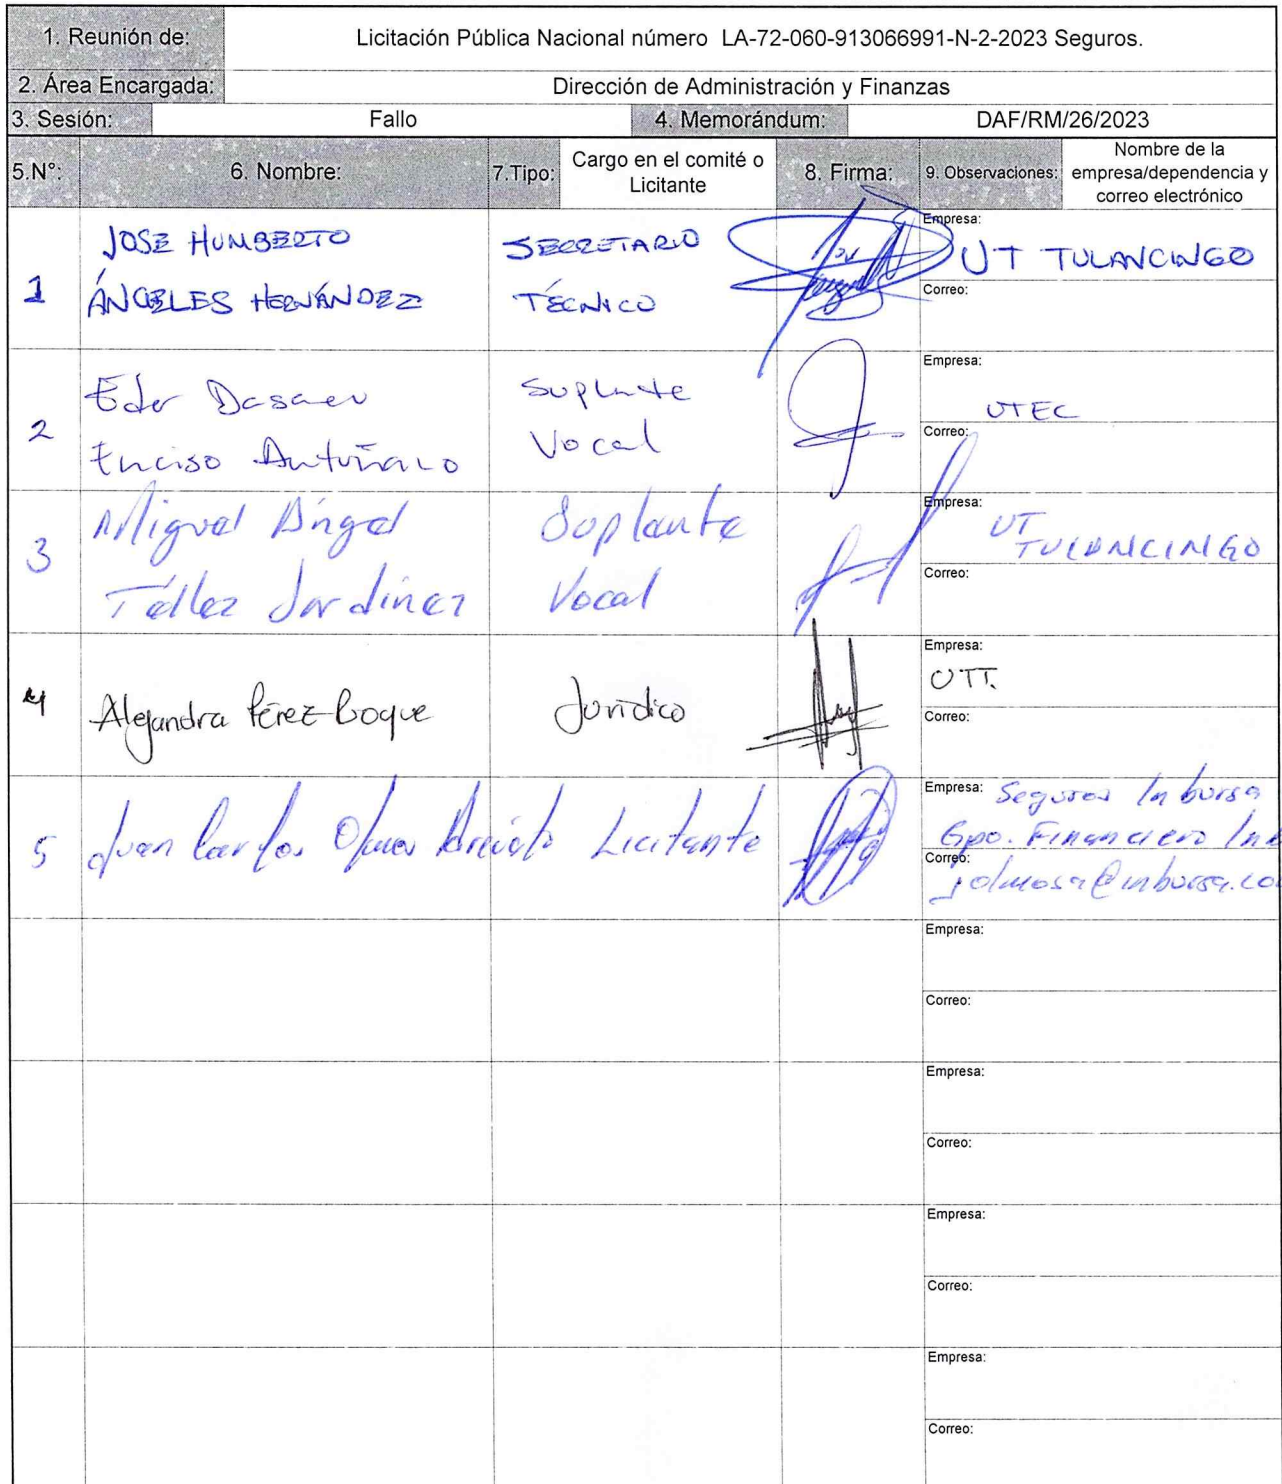 1. Reunión de:
Licitación Pública Nacional número LA-72-060-913066991-N-2-2023 Seguros.
2. Área Encargada:
Dirección de Administración y Finanzas
3. Sesión:
Fallo
4. Memorándum:
DAF/RM/26/2023
5.N°:
6. Nombre:
7.Tipo:
Cargo en el comité o
Licitante
8. Firma:
9. Observaciones:
Nombre de la
empresa/dependencia y
correo electrónico
1
JOSE HUMBERTO
ÁNGELES HERNÁNDEZ
SECRETARIO
TÉCNICO
Empresa:
UT TULANCINGO
Correo:
2
Eder
Enciso
Suplente
Vocal
Empresa:
UTEC
Correo:
3
Miguel Ángel
Téllez Jardinez
Suplante
Vocal
Empresa:
UT
TULANCINGO
Correo:
4
Alejandra Pérez Roque
Jurídico
Empresa:
UTT.
Correo:
5
Juan Carlos Olmos
Licitante
Empresa: Seguros Inbursa
Gpo. Financiero Inb
Correo:
jolmosa@inbursa.co
Empresa:
Correo:
Empresa:
Correo:
Empresa:
Correo:
Empresa:
Correo: